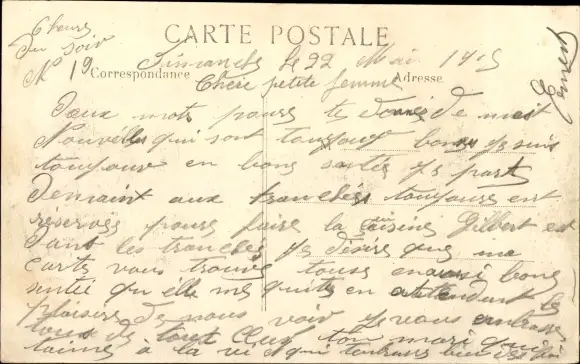 6 heures
du soir
N° 19
CARTE POSTALE
Correspondance
Adresse
Dimanche le 22 Mai 1915
Chère petite femme
Ernest
Deux mots pour te donné de mest
Nouvelles qui sont toujour bonnes je suis
toujour en bone santée je part
Demaint aux tranchées toujours en
reserves pour faire la cuisine Gilbert est
dant les tranchées je désire que ma
carte vous trouve touss enaussi bone
sentié qu elle me quitte en attendent le
plaisire de nous voir je vous embrasse
tous de tout Cleur ton mari qui
taime à la vi qui toujours